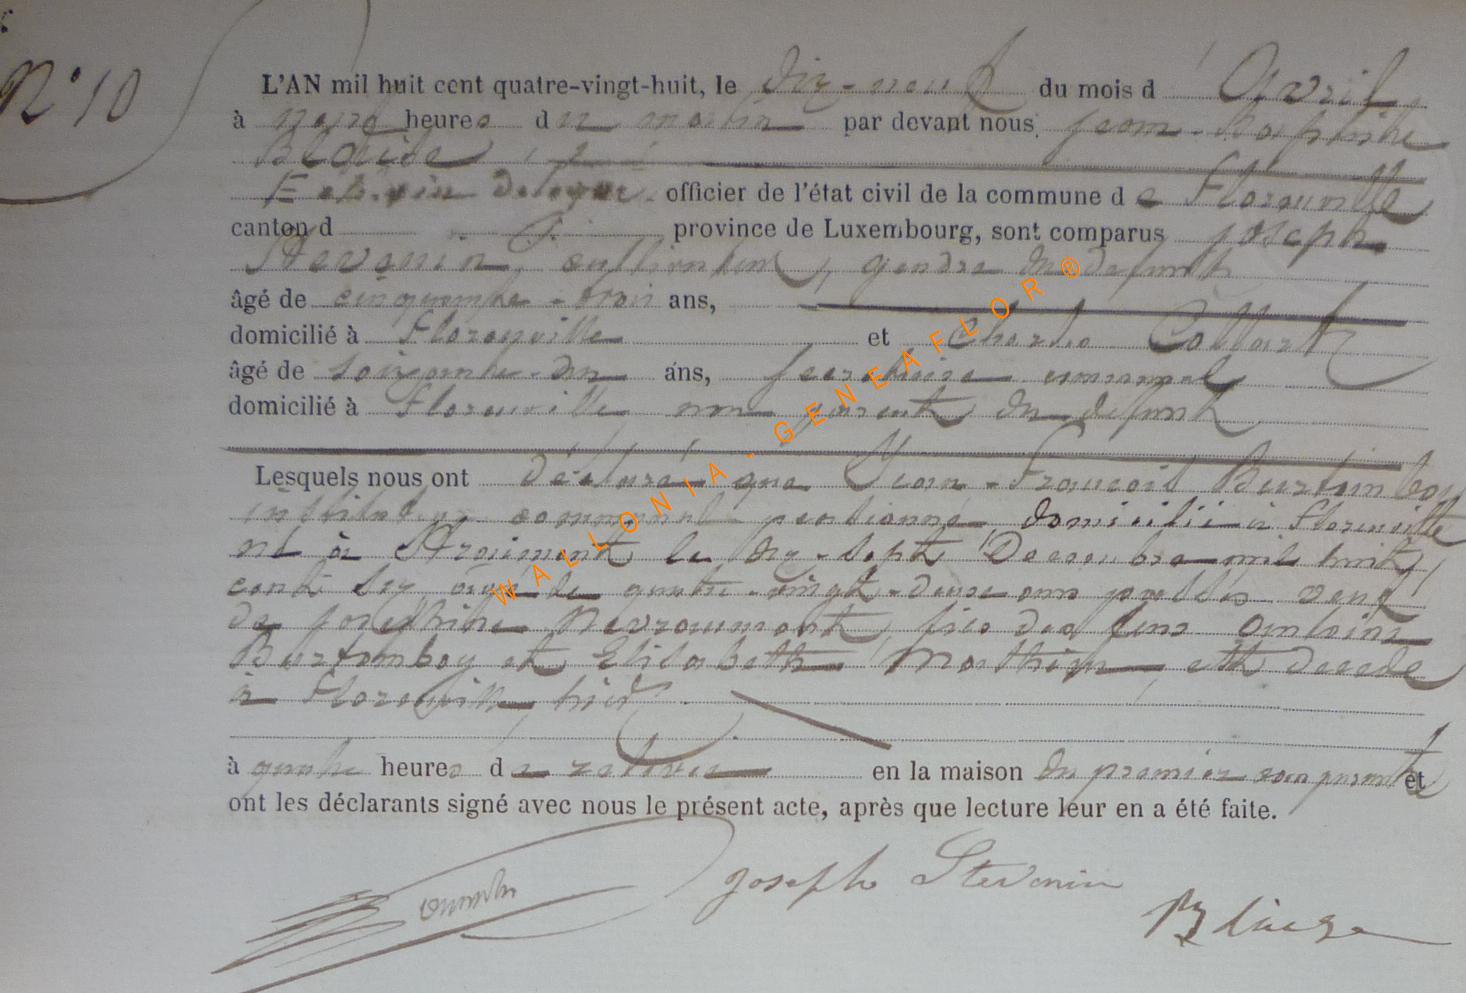 N° 10
L'AN mil huit cent quatre-vingt-huit, le dix-neuf du mois d'Avril
à neuf heures du matin par devant nous, Jean-Baptiste
Echevin délégué officier de l'état civil de la commune de Florenville
canton d province de Luxembourg, sont comparus Joseph
Stevenin, cultivateur, gendre du defunt
âgé de cinquante-trois ans,
domicilié à Florenville et Charles Collart
âgé de soixante-un ans, secrétaire communal
domicilié à Florenville non parent du defunt
Lesquels nous ont déclaré que Jean-François Burtomboy
instituteur communal pensionné domicilié à Florenville
né à Straimont le dix-sept Decembre mil huit
cent six, âgé de quatre-vingt-deux ans passés veuf
de Josephine Nevraumont, fils des feus Antoine
Burtomboy et Elisabeth Mathieu, est decede
à Florenville hier
à quatre heures de relevée en la maison du premier comparant et
ont les déclarants signé avec nous le présent acte, après que lecture leur en a été faite.
Joseph Stevenin
WALLONIA - GENEAFLOR®